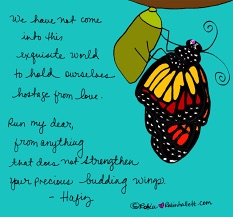 We have not come
into this
exquisite world
to hold ourselves
hostage from love.
Run my dear,
from anything
that does not strengthen
your precious budding wings.
- Hafiz